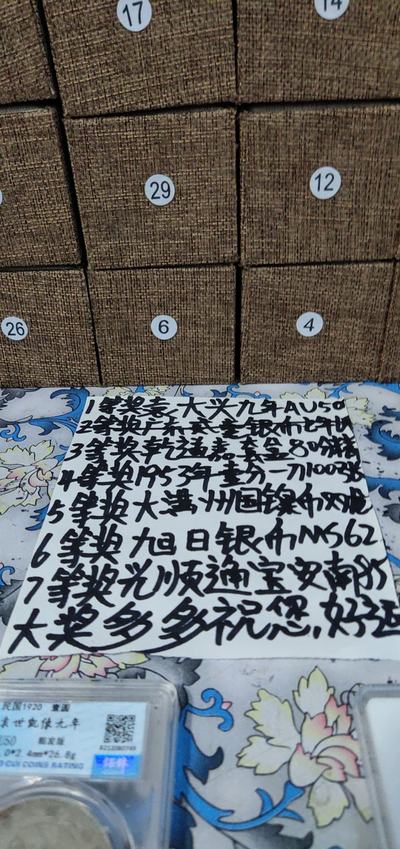 17
14
29
12
26
6
4
1等奖袁大头九年AU50
2等奖广东
3等奖乾通嘉套盒80
4等奖1953年壹分一刀100张
5等奖大满州国镍币双龙
6等奖旭日银币MS62
7等奖光顺通宝安南85
大奖多多祝您,好运
民国1920 壹圆
袁世凯像九年
U50
0*2.4mm*26.8g
COINS RATING